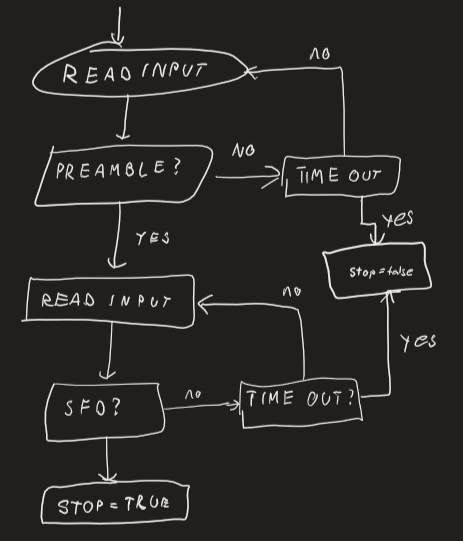 no
READ INPUT
PREAMBLE?
NO
TIME OUT
yes
YES
Stop=false
READ INPUT
no
yes
SFD?
no
TIME OUT?
STOP=TRUE